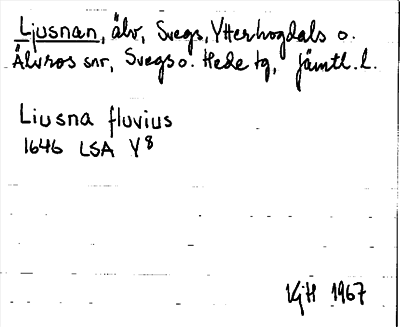 Ljusnan, älv, Svegs, Ytterhogdals o.
Älvros snr, Svegs o. Hede tg, Jämtl. l.
Liusna fluvius
1646 LSA Y8
KjH 1967